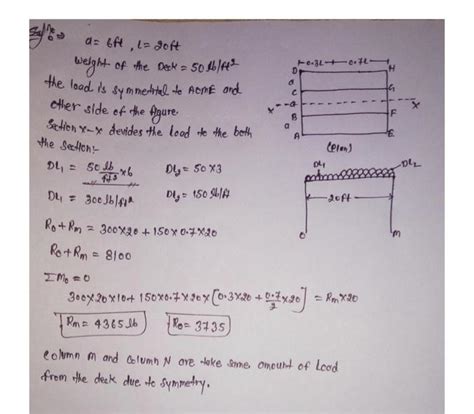 a = 6ft , l = 20ft
Weight of the Deck = 50 lb/ft²
the load is symmetrital to ACME and
other side of the figure.
Section x-x devides the Load to the both
the Section:-
DL₁ = 50 lb/ft² x6    DL₂ = 50 X3
DL₁ = 300 lb/ft²    DL₂ = 150 lb/ft
R₀ + Rm = 300x20 + 150x0.7x20
R₀ + Rm = 8100
ΣM₀ = 0
300x20x10 + 150x0.7x20x[0.3x20 + 0.7/2 x20] = Rm x20
Rm = 4365 lb    R₀ = 3735
Column M and Column N are take same amount of Load
from the deck due to symmetry.
0.3L    0.7L
D    H
a
C    G
x    a    x
B    F
a
A    E
(Plan)
DL₁    DL₂
20ft
O    M